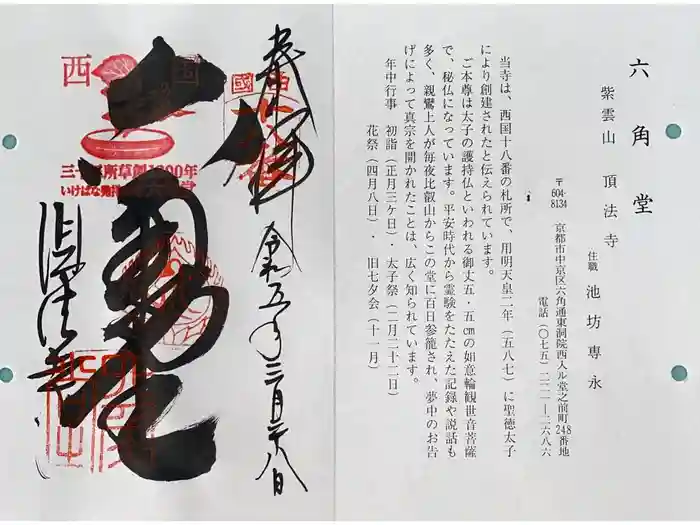 六角堂
紫雲山　頂法寺
住職　池坊専永
〒604-8134　京都市中京区六角通東洞院西入ル堂之前町248番地
電話（〇七五）二二一―二六八六
当寺は、西国十八番の札所で、用明天皇二年（五八七）に聖徳太子
により創建されたと伝えられています。
ご本尊は太子の護持仏といわれる御丈五・五㎝の如意輪観世音菩薩
で、秘仏になっています。平安時代から霊験をたたえた記録や説話も
多く、親鸞上人が毎夜比叡山からこの堂に百日参籠され、夢中のお告
げによって真宗を開かれたことは、広く知られています。
年中行事　初詣（正月三ケ日）・太子祭（二月二十二日）
花祭（四月八日）・旧七夕会（十一月）
奉拝
令和五年三月廿八日
西国
三十三所草創1300年
いけばな発祥
頂法寺